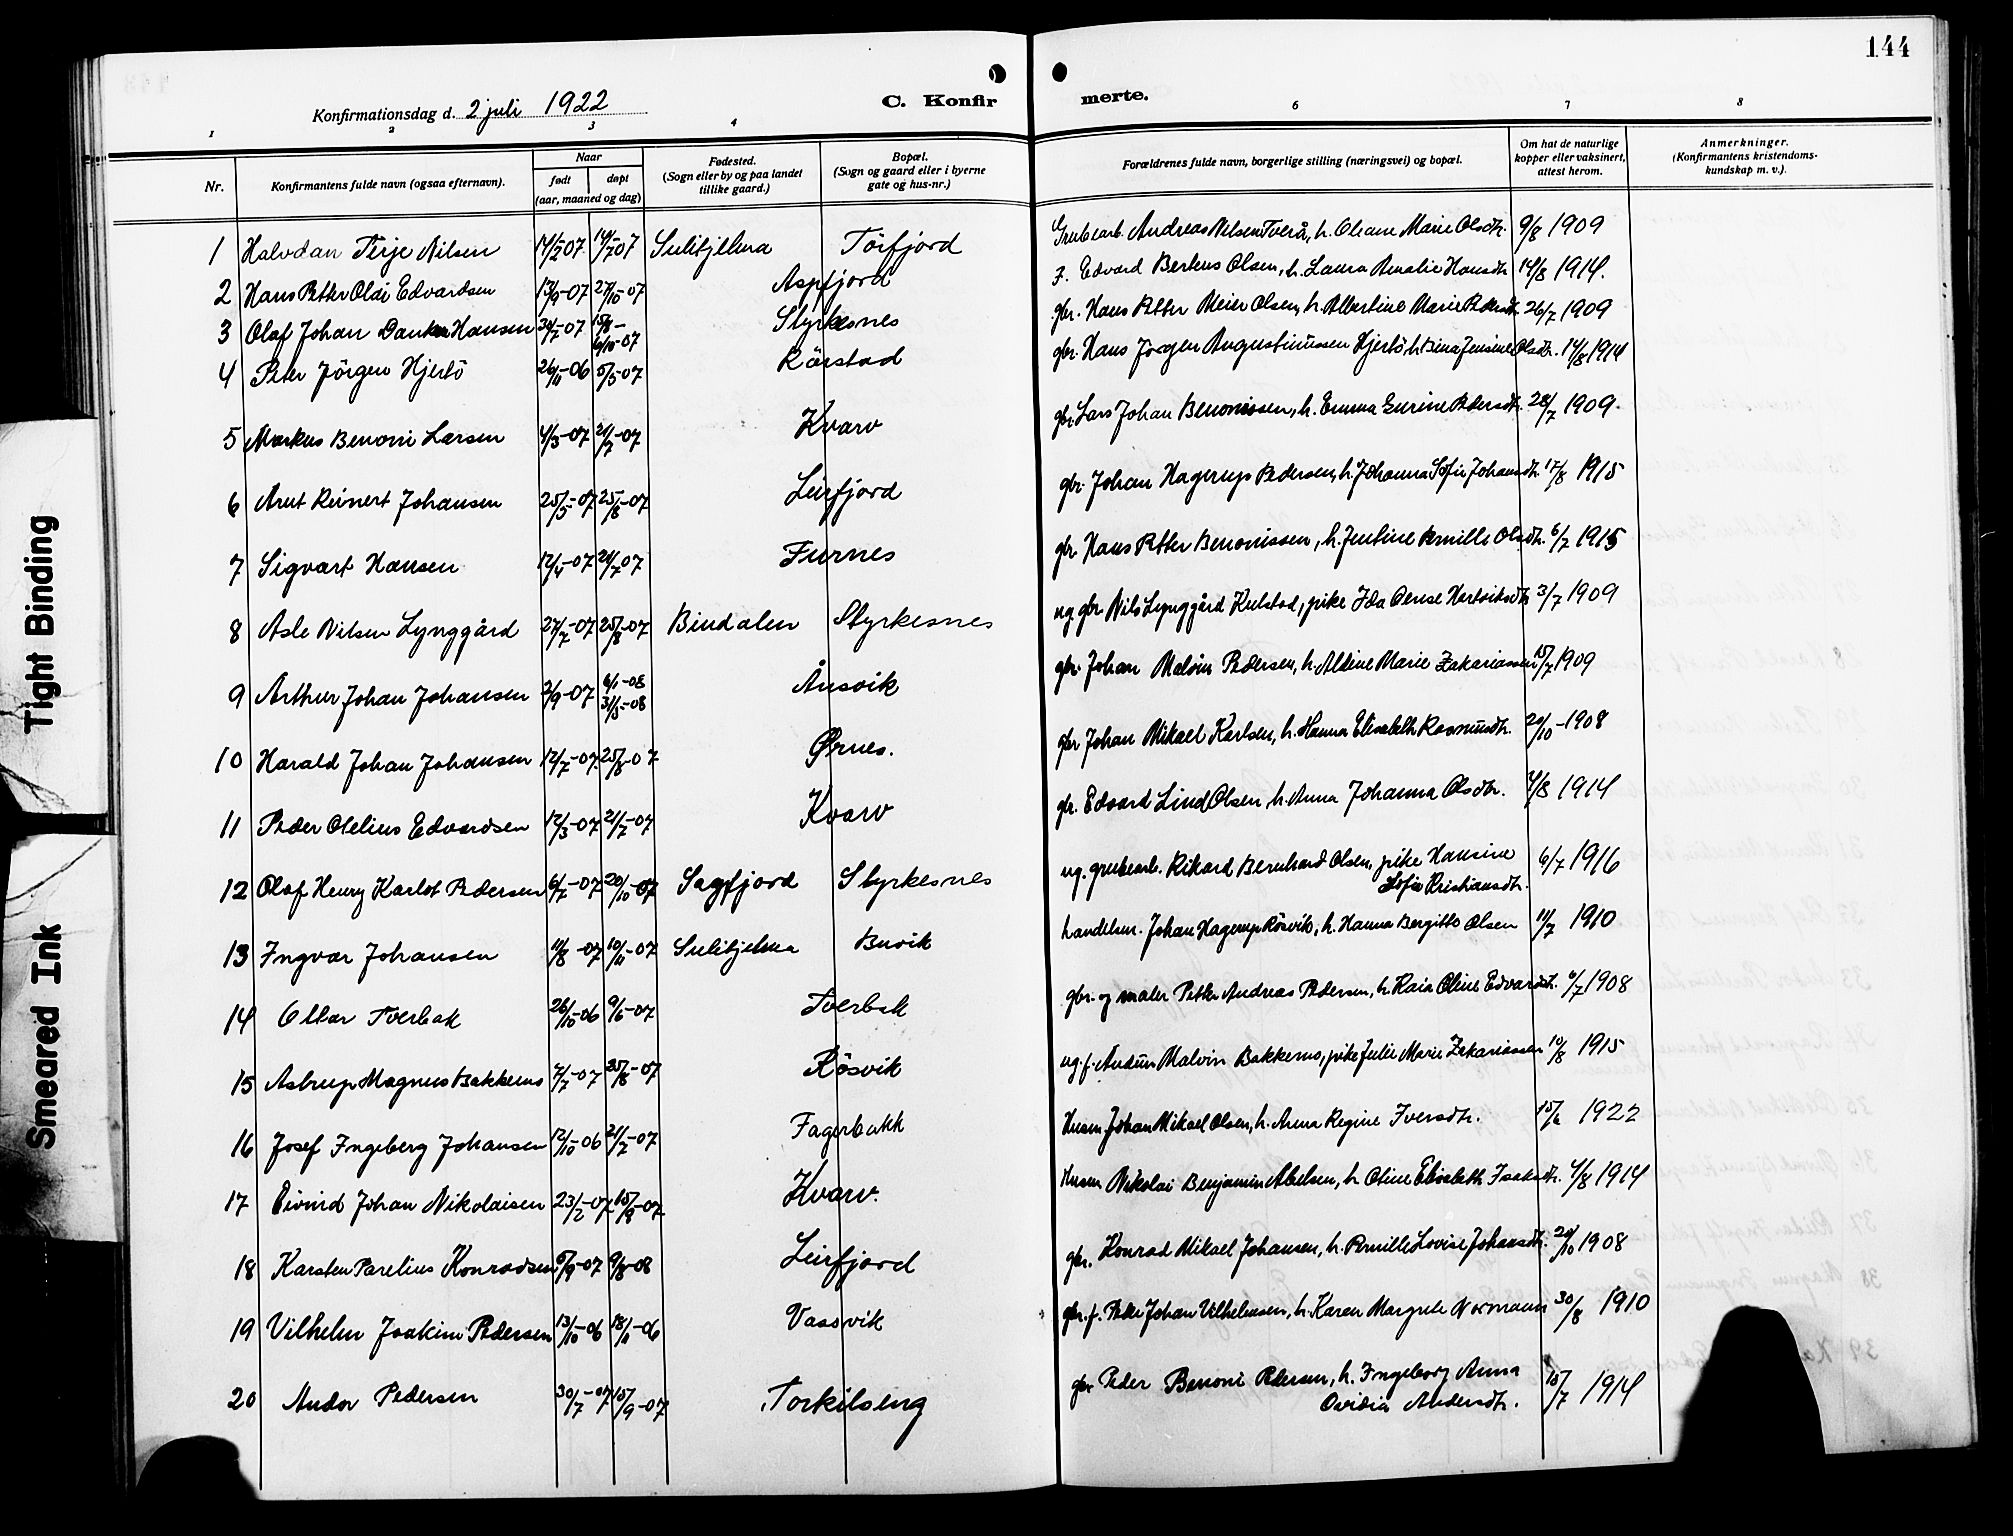 144
Konfirmationsdag d. 2 juli 1922
C. Konfirmerte.
1 2 3 4 6 7 8
Nr.
Konfirmantens fulde navn (ogsaa efternavn).
Naar
født
døpt
(aar, maaned og dag)
Fødested.
(Sogn eller by og paa landet
tillike gaard.)
Bopæl.
(Sogn og gaard eller i byerne
gate og hus-nr.)
Forældrenes fulde navn, borgerlige stilling (næringsvei) og bopæl.
Om hat de naturlige
kopper eller vaksinert,
attest herom.
Anmerkninger.
(Konfirmantens kristendoms-
kundskap m. v.).
1 Halvdan Terje Nilsen 14/2 07 14/7 07 Sulitjelma Törfjord Grubearb. Andreas Nilsen Tverå, h. Marie Olsdtr. 9/8 1909
2 Hans Petter Olai Edvardsen 13/9-07 27/10-07 Aspfjord F. Edvard Berteus Olsen, h. Laura Amalie Hansdtr 14/8 1914.
3 Olaf Johan Hansen 07 15/8- 6/10-07 Styrkesnes gbr. Hans Petter Meier Olsen, h. Albertine Marie Pedersdtr. 26/7 1909
4 Peter Jörgen Hjertö 26/11-06 5/5-07 Rörstad gbr. Hans Jörgen Augustinussen Hjertö, h. Bina Jensine Olsdtr. 14/8 1914
5 Markus Benoni Larsen 4/3-07 21/7-07 Kvarv gbr. Lars Johan Benonissen, h. Emma Pedersdtr. 28/7 1909.
6 Arnt Reinert Johansen 25/5-07 25/8-07 Leirfjord gbr. Johan Hagerup Pedersen, h. Johanna Sofie Johansdtr. 17/8 1915
7 Sigvart Hansen 12/4-07 21/7 07 Furnes gbr. Hans Petter Benonissen, h. Jentine Pernille Olsdtr. 6/7 1915
8 Asle Nilsen Lynggård 27/2-07 25/8-07 Bindalen Styrkesnes ug. gbr. Nils Lynggård Kulstad, pike Ida Hartviksdtr 3/7 1909
9 Arthur Johan Johansen 2/9-07 6/1-08 31/5-08 Ånsvik gbr. Johan Malvin Pedersen, h. Aldine Marie Zakariassen 15/7 1909
10 Harald Johan Johansen 12/7-07. 25/8-07 Ørnes. gbr Johan Mikael Karlsen, h. Hanna Elisabeth Rasmusdtr. 20/10-1908
11 Peder Otelius Edvardsen 12/3-07 21/7-07 Kvarv gbr. Edvard Lind Olsen, h. Anna Johanna Olsdtr. 4/8 1914
12 Olaf Henry Karlot Pedersen 6/7-07 20/10-07 Sagfjord Styrkesnes ug. grubearb. Rikard Bernhard Olsen, pike Hansine 6/7 1916
Sofie Kristiansdtr.
13 Ingvar Johansen 11/8-07 10/11-07 Sulitjelma Buvik handelsm. Johan Hagerup Rösvik, h. Hanna Bergitte Olsen 11/7 1910
14 Ottar Tverbak 26/10-06 9/5-07 Tverbak gbr. og maler Petter Andreas Pedersen, h. Kaia Oline Edvardsdtr. 6/7 1908
15 Astrup Magnus Bakkemo 7/7-07 25/8-07 Rösvik ug. f. Audun Malvin Bakkemo, pike Julie Marie Zakariassen 10/8 1915
16 Josef Ingeberg Johansen 12/10-06 21/7-07 Fagerbakk Husm. Johan Mikael Olsen, h. Anna Regine Iversdtr. 15/6 1922
17 Eivind Johan Nikolaisen 23/2-07 15/9-07 Kvarv. Husm Nikolai Benjamin Abelsen, h. Oline Elisabeth Isaksdtr. 4/8 1914
18 Karsten Parelius Konradsen 5/9-07 9/8-08 Leirfjord gbr. Konrad Mikael Johansen, h. Pernille Lovise Johansdtr. 20/10 1908
19 Vilhelm Joakim Pedersen 13/10-06 18/11-06 Vassvik gbr. f. Peder Johan Vilhelmsen, h. Karen Margrete Normann 30/8 1910
20 Andor Pedersen 30/7-07 15/9-07 Torkilseng gbr Peder Benoni Pedersen, h. Ingeborg Anna 15/7 1914
Ovidia Andersdtr.
Tight Binding
Smeared Ink